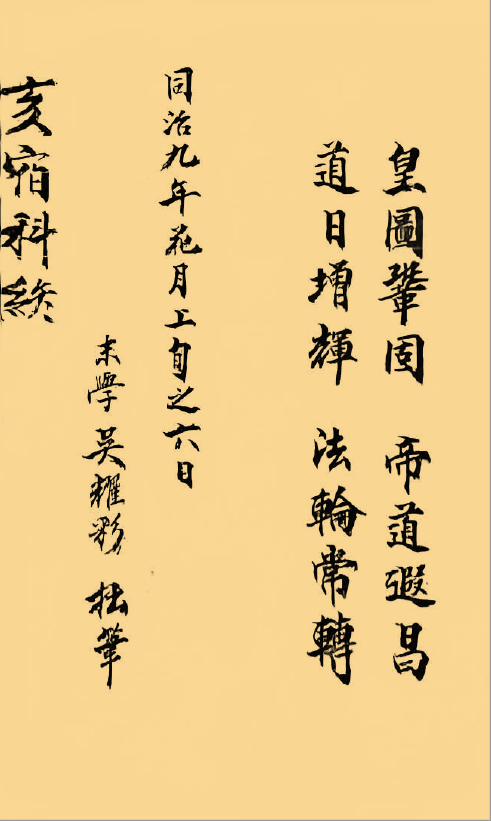 皇圖鞏固 帝道遐昌
道日增輝 法輪常轉
同治九年花月上旬之六日
末學吳耀彩 拙筆
亥宿科終